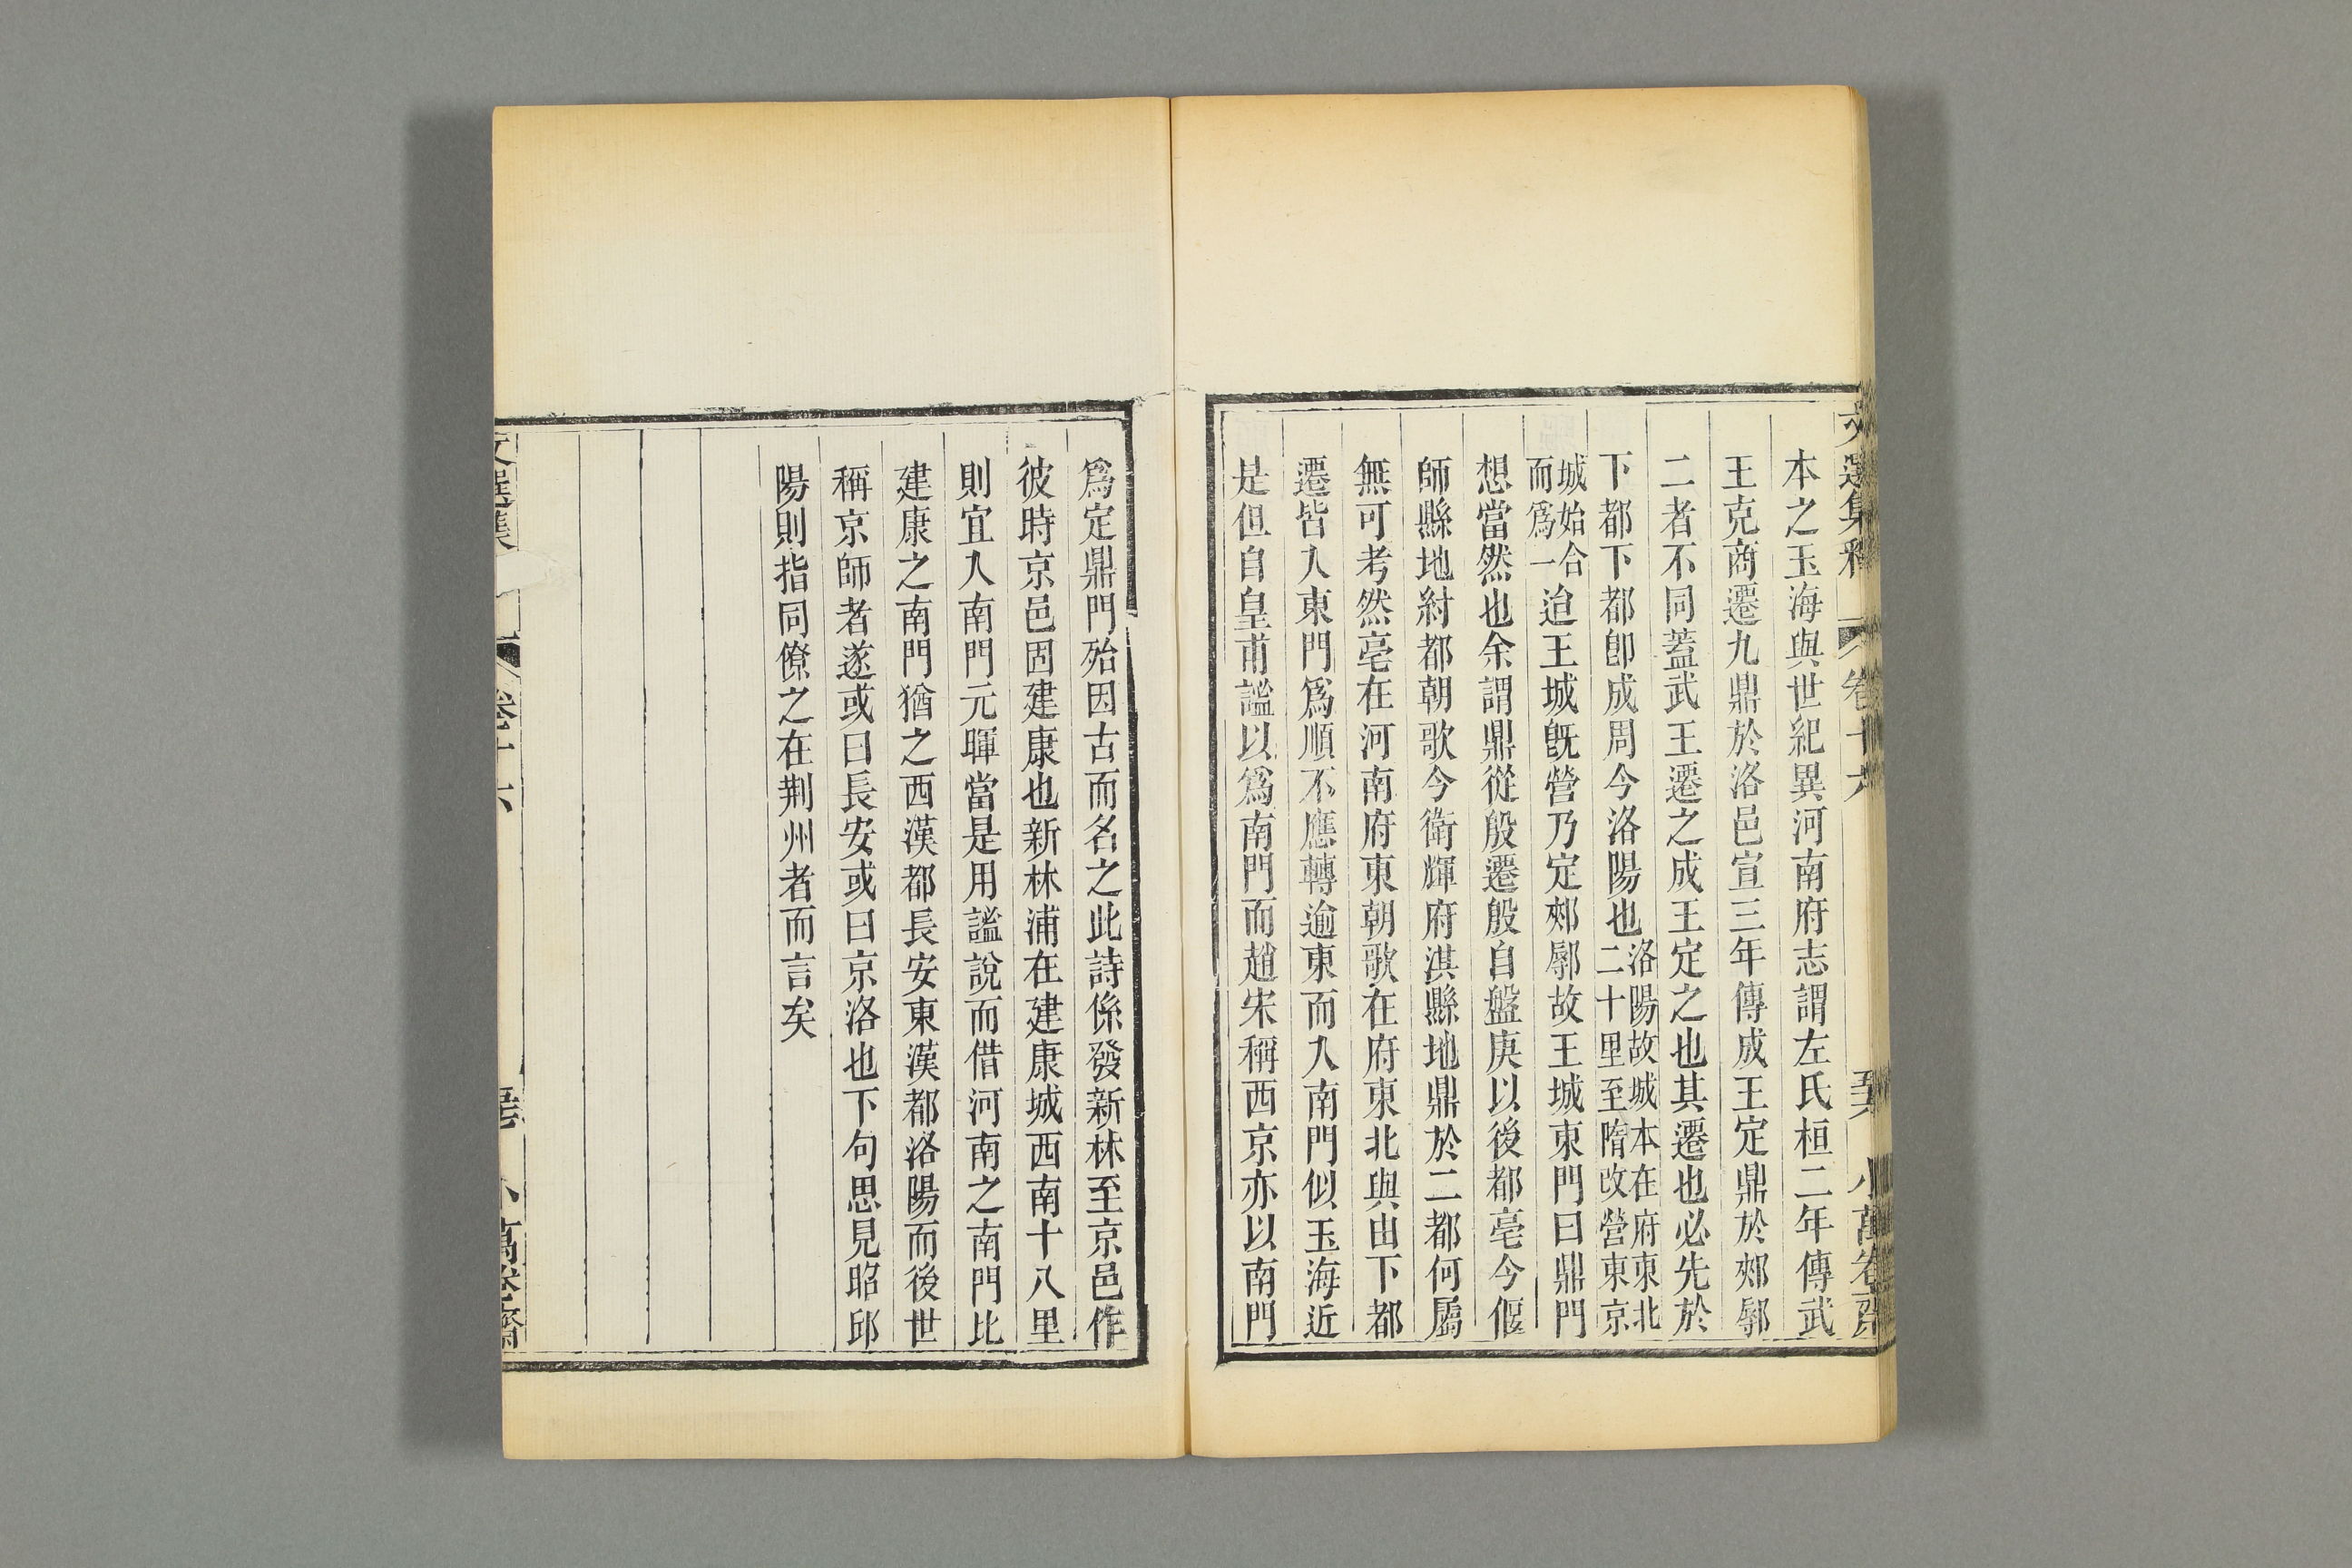 文選集釋 卷十六 小萬卷齋
本之玉海與世紀異河南府志謂左氏桓二年傳武
王克商遷九鼎於洛邑宣三年傳成王定鼎於郟鄏
二者不同蓋武王遷之成王定之也其遷也必先於
下都下都卽成周今洛陽也洛陽故城本在府東北二十里至隋改營東京
城始合而爲一迨王城旣營乃定郟鄏故王城東門曰鼎門
想當然也余謂鼎從殷遷殷自盤庚以後都亳今偃
師縣地紂都朝歌今衛輝府淇縣地鼎於二都何屬
無可考然亳在河南府東朝歌在府東北與由下都
遷皆入東門爲順不應轉逾東而入南門似玉海近
是但自皇甫謐以爲南門而趙宋稱西京亦以南門
爲定鼎門殆因古而名之此詩係發新林至京邑作
彼時京邑固建康也新林浦在建康城西南十八里
則宜入南門元暉當是用謐說而借河南之南門比
建康之南門猶之西漢都長安東漢都洛陽而後世
稱京師者遂或曰長安或曰京洛也下句思見昭邱
陽則指同僚之在荆州者而言矣
卷十六 小萬卷齋